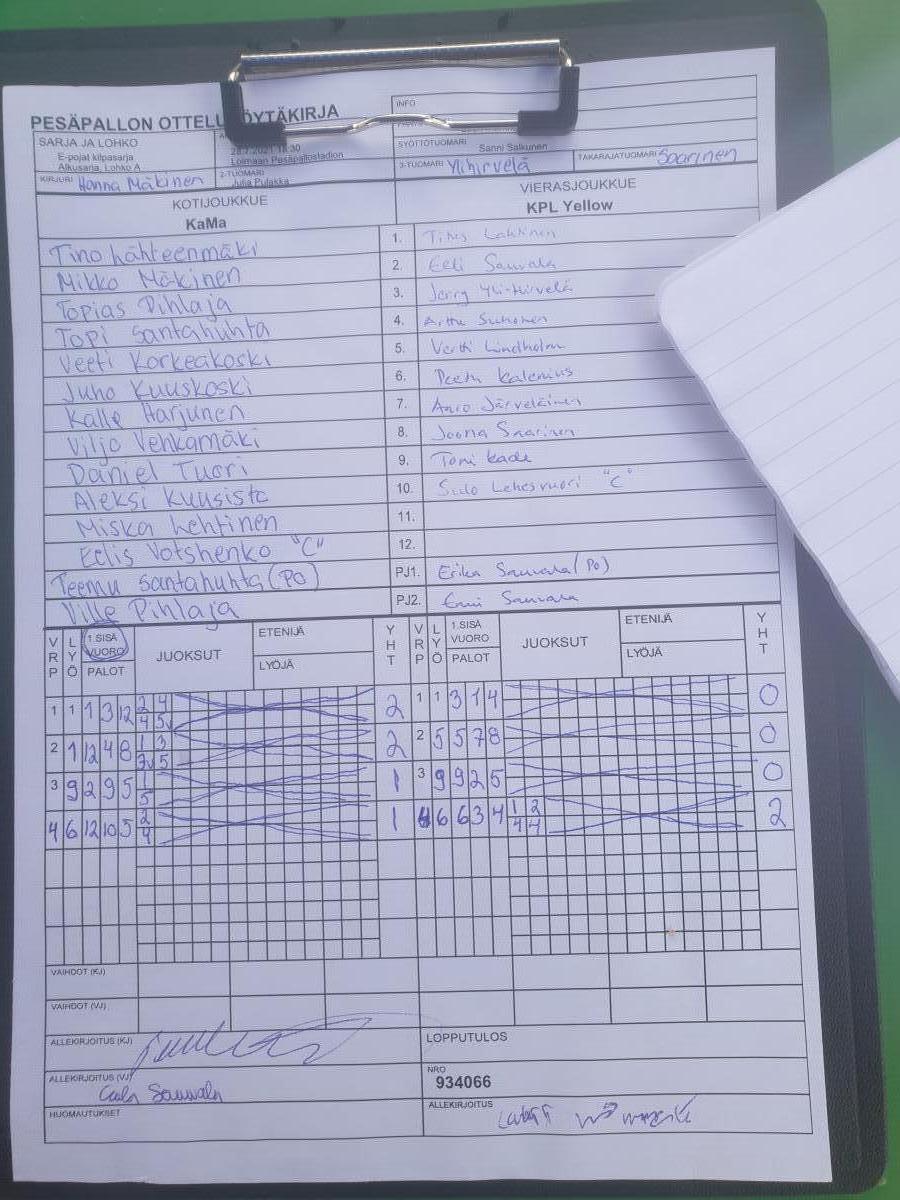 PESÄPALLON OTTELUPÖYTÄKIRJA
INFO
SARJA JA LOHKO
E-pojat kilpasarja
Alkusarja, Lohko A
28.7.2021 18:30
Loimaan Pesäpallostadion
SYÖTTÖTUOMARI Sanni Salkunen
KIRJURI Hanna Mäkinen
2-TUOMARI
Julia Pulakka
3-TUOMARI Ylihirvelä
TAKARAJATUOMARI Saarinen
KOTIJOUKKUE
KaMa
VIERASJOUKKUE
KPL Yellow
Tino Lähteenmäki 1. Titus Lahtinen
Mikko Mäkinen 2. Eeli Sauvala
Topias Pihlaja 3. Jerry Yli-Hirvelä
Topi Santahuhta 4. Arttu Suhonen
Veeti Korkeakoski 5. Vertti Lindholm
Juho Kuuskoski 6. Peetu Kalenius
Kalle Harjunen 7. Aaro Järveläinen
Viljo Venkamäki 8. Joona Saarinen
Daniel Tuori 9. Tomi Kade
Aleksi Kuusisto 10. Sulo Lehesvuori "C"
Miska Lehtinen 11.
Eelis Votshenko "C" 12.
Teemu Santahuhta (PO) PJ1. Erika Sauvala (PO)
Ville Pihlaja PJ2. Emi Sauvala
VRP LYÖ 1.SISÄ VUORO PALOT JUOKSUT ETENIJÄ LYÖJÄ YHT VRP LYÖ 1.SISÄ VUORO PALOT JUOKSUT ETENIJÄ LYÖJÄ YHT
1 1 1 3 12 2 4 2 1 1 3 1 4 0
4 5v
2 1 12 4 8 1 3 2 2 5 5 7 8 0
3v 5
3 9 2 9 5 1 1 3 9 9 2 5 0
5
4 6 12 10 5 2 1 4 6 6 3 4 1 2 2
4 4 4
VAIHDOT (KJ)
VAIHDOT (VJ)
ALLEKIRJOITUS (KJ)
LOPPUTULOS
ALLEKIRJOITUS (VJ)
Sauvala
NRO
934066
HUOMAUTUKSET
ALLEKIRJOITUS